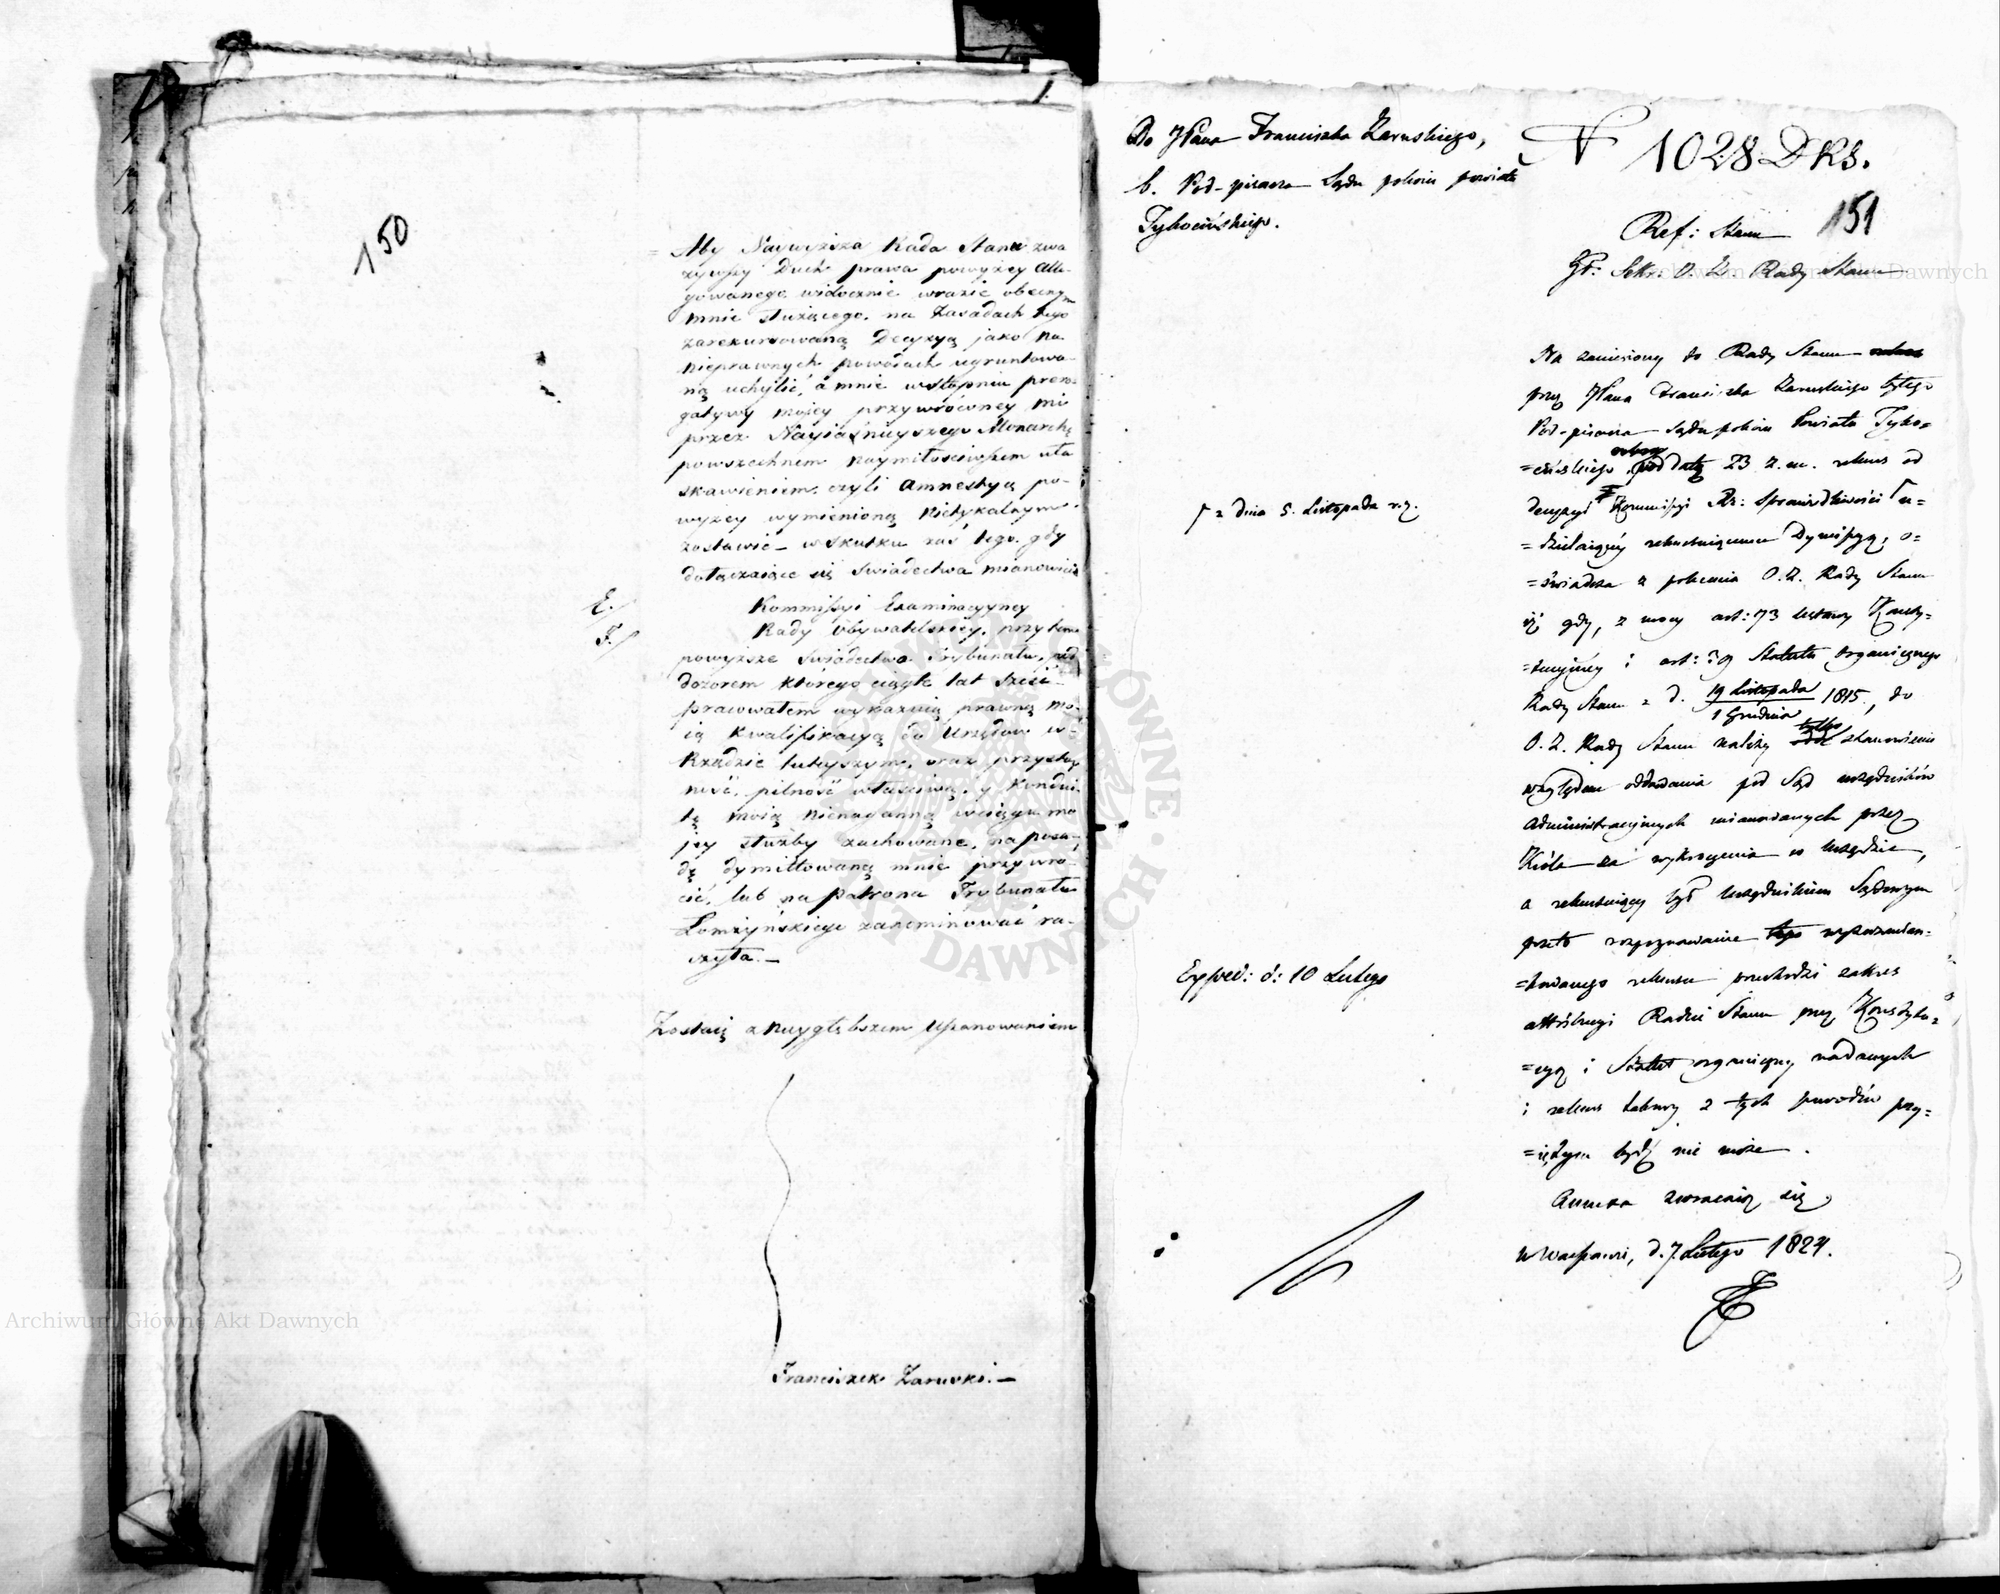 150
1.
Aby Naywyższa Rada Stanu zwa
żywszy Duch prawa powyżey Alle-
gowanego widocznie wrazie obecnym
mnie służącego, na Zasadach tego
zarekursowaną Decyzyą jako na
nieprawnych powodach ugruntowa-
ną uchylić, a mnie wstępniu prero-
gatywy mojey przywróconey mi
przez Nayiaśnieyszego Monarchę
powszechnem naymiłościwszem uła
skawieniem, czyli Amnestyą po-
wyżey wymienioną nietykalnym
zostawić – w skutku zaś tego, gdy
dołączaiące się Swiadectwa mianowicie
E./ Kommissyi Examinacyyney
F./ Rady Obywatelskiey, przytem
powyższe Swiadectwo Trybunału, pod
dozorem którego ciągle lat sześć
pracowałem wykazuią prawną mo-
ią kwalifikacyą do Urzędów w
Rządzie tuteyszym, oraz przystoy
ność, pilność właściwą, y kondui-
tę moią nienaganną wciągu mo
jey służby zachowane, na posa-
dę dymittowaną mnie przywró-
cić, lub na Patrona Trybunału
Łomżyńskiego zanominować ra-
czyła. –
Zostaię z naygłębszem uszanowaniem
Franciszek Zaruski. –
Do JPana Franciszka Zaruskiego,
b. Pod-pisarza Sądu pokoiu powiatu
Tykocińskiego.
N 1028 DRS.
151
Ref: Stanu
Gł: Sekr. O. Z. Rady Stanu
Na zaniesiony do Rady Stanu
przez JPana Franciszka Zaruskiego byłego
Pod-pisarza Sądu pokoiu Powiatu Tyko=
=cińskiego pod datą 23 z. m. rekurs od
decyzyi Kommissyi Rz: Sprawiedliwości Γ u=
Γ z dnia 5. Listopada r. z.
=dzielaiącéy rekuruiącemu Dymissyą, o=
=świadcza z polecenia O. Z. Rady Stanu
iż gdy, z mocy art: 73 Ustawy Konsty=
=tucyjnéy i art: 29 Statutu organicznego
Rady Stanu z d. 19 Listopada / 1 Grudnia 1815, do
O. Z. Rady Stanu należy tylko stanowienie
względem oddawania pod Sąd urzędników
administracyjnych mianowanych przez
Króla za wykroczenia w Urzędzie,
a rekuruiący był Urzędnikiem Sądowym
przeto rozpoznawanie wyżwzmian=
=kowanego rekursu przechodzi zakres
Expedi: d: 10 Lutego
attrybucyi Radzie Stanu przez Konstytu=
=cyą i Statut organiczny nadanych
i rekurs takowy z tych powodów przy=
=iętym bydź nie może.
Annexa zwracaią się
w Warszawie, d. 7. Lutego 1824.
Archiwum Główne Akt Dawnych
Archiwum Główne Akt Dawnych